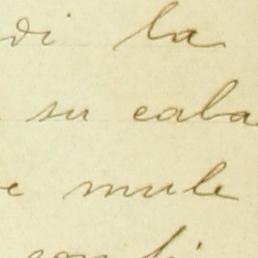 di la
su caba
e mule